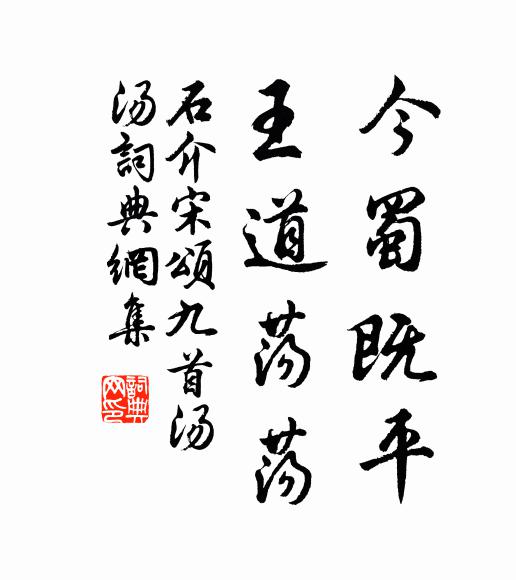 今蜀既平
王道荡荡
石介宋頌九首汤
汤詞典網集
詞典
网印